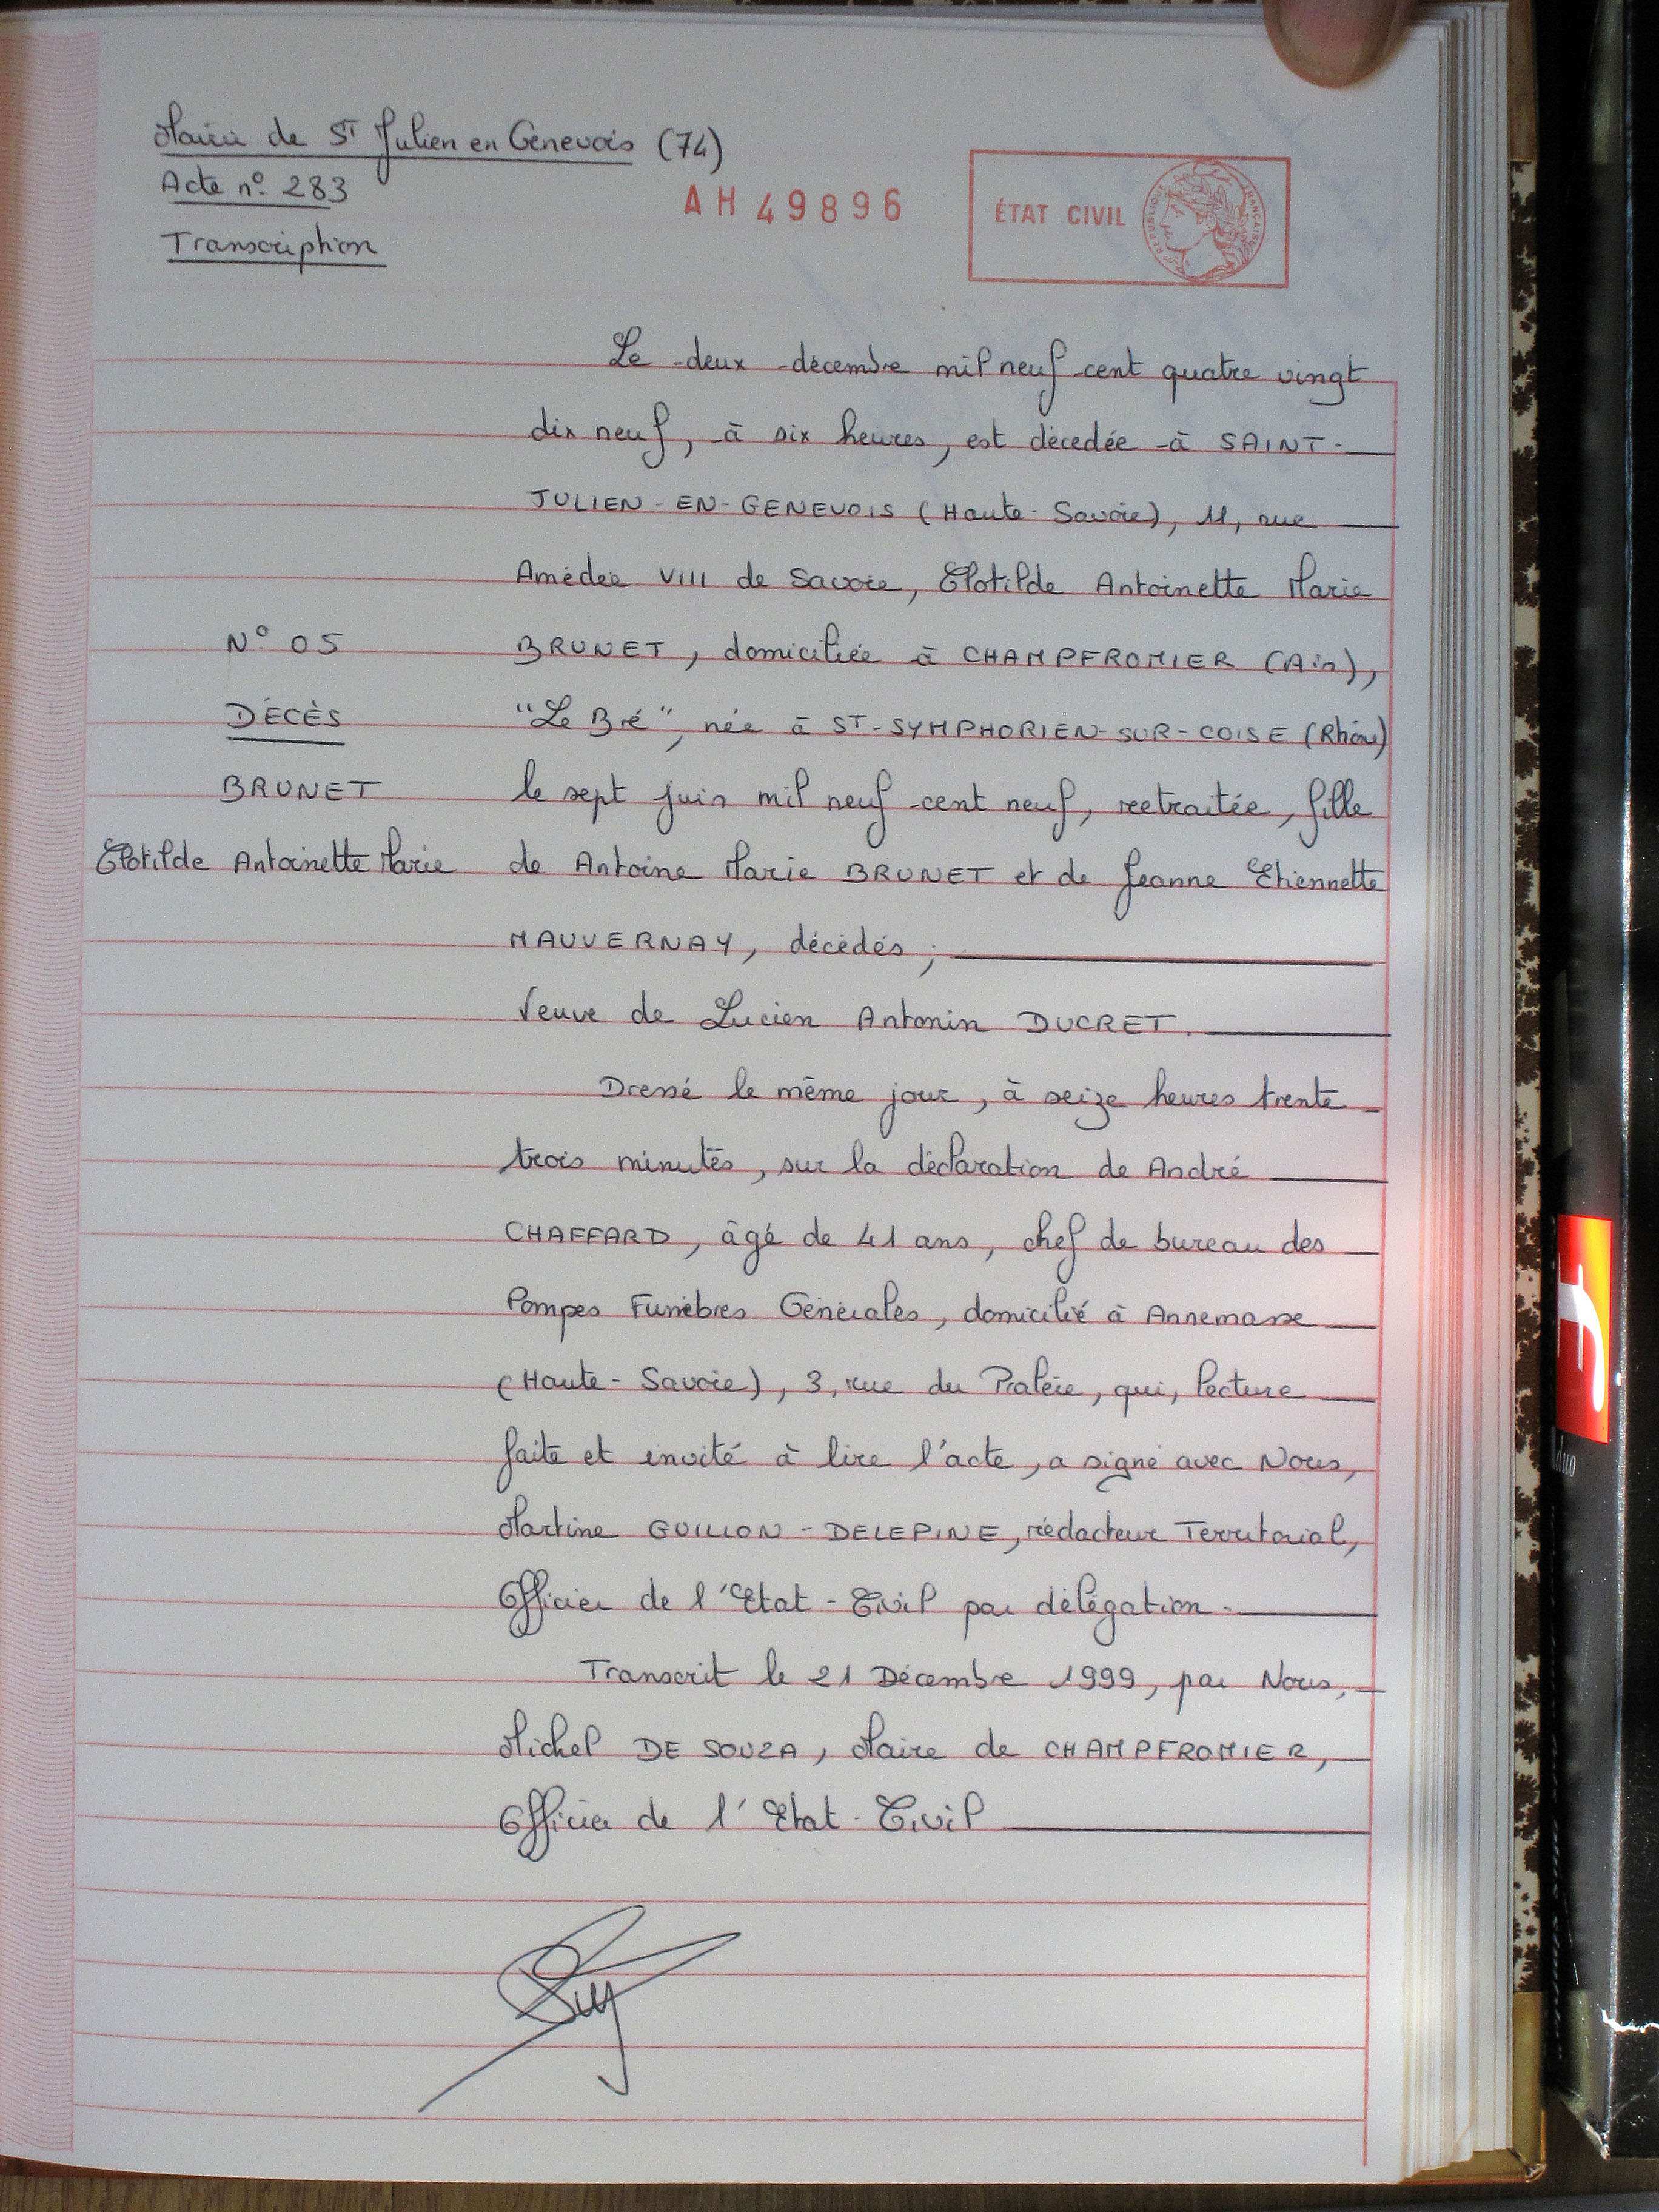 Mairie de St Julien en Genevois (74)
Acte n° 283
Transcription
AH 49896
ÉTAT CIVIL
RÉPUBLIQUE FRANÇAISE
Le deux décembre mil neuf cent quatre vingt
dix neuf, à six heures, est décédée à SAINT-
JULIEN-EN-GENEVOIS (Haute-Savoie), 11, rue
Amédée VIII de Savoie, Clotilde Antoinette Marie
N° 05
BRUNET, domiciliée à CHAMPFROMIER (Ain),
DÉCÈS
"Le Bré", née à ST-SYMPHORIEN-SUR-COISE (Rhône)
BRUNET
le sept juin mil neuf cent neuf, reetraitée, fille
Clotilde Antoinette Marie
de Antoine Marie BRUNET et de Jeanne Etiennette
MAUVERNAY, décédés ;
Veuve de Lucien Antonin DUCRET.
Dressé le même jour, à seize heures trente
trois minutes, sur la déclaration de André
CHAFFARD, âgé de 41 ans, chef de bureau des
Pompes Funèbres Générales, domicilié à Annemasse
(Haute-Savoie), 3, rue du Praléie, qui, lecture
faite et invité à lire l'acte, a signé avec Nous,
Martine GUILLON-DELEPINE, rédacteur Territorial,
Officier de l'Etat-Civil par délégation.
Transcrit le 21 Décembre 1999, par Nous,
Michel DE SOUZA, Maire de CHAMPFROMIER,
Officier de l'Etat-Civil
duo